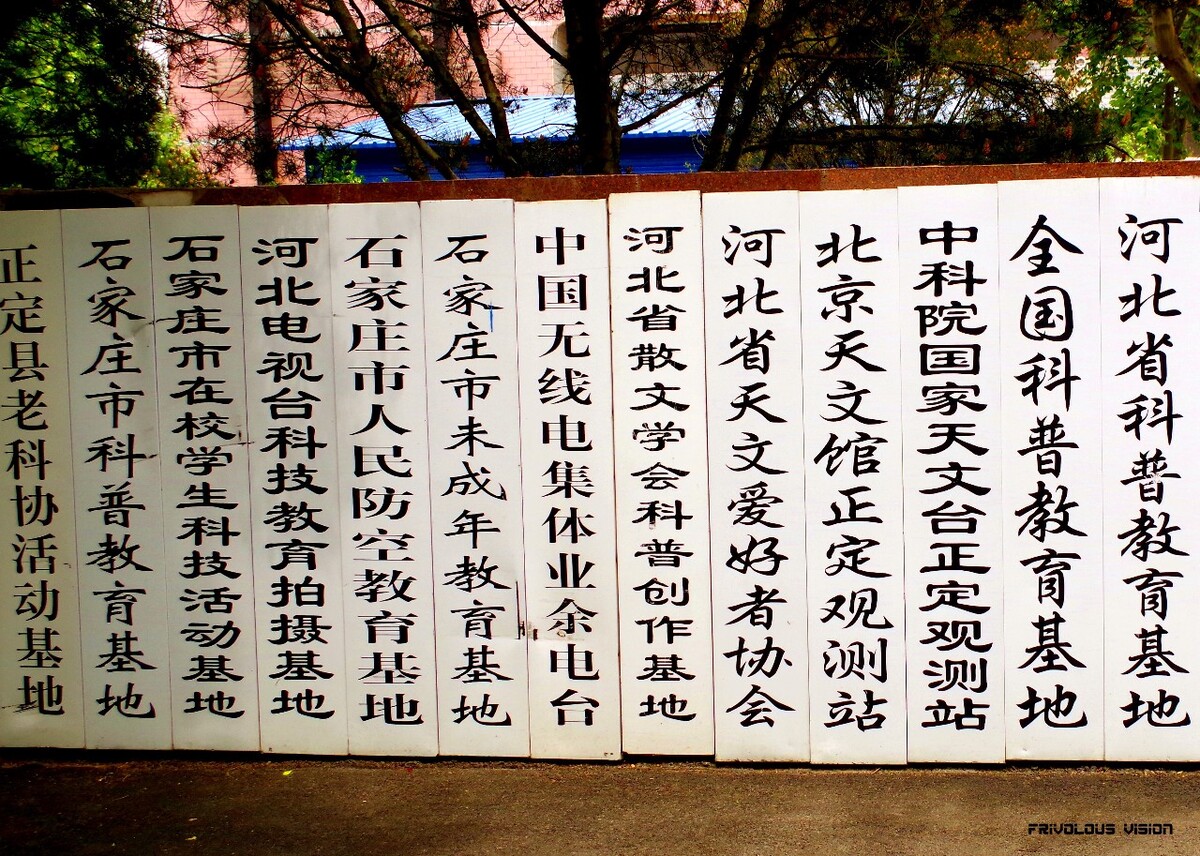 正定县老科协活动基地
石家庄市科普教育基地
石家庄市在校学生科技活动基地
河北电视台科技教育拍摄基地
石家庄市人民防空教育基地
石家庄市未成年教育基地
中国无线电集体业余电台
河北省散文学会科普创作基地
河北省天文爱好者协会
北京天文馆正定观测站
中科院国家天文台正定观测站
全国科普教育基地
河北省科普教育基地
FRIVOLOUS VISION